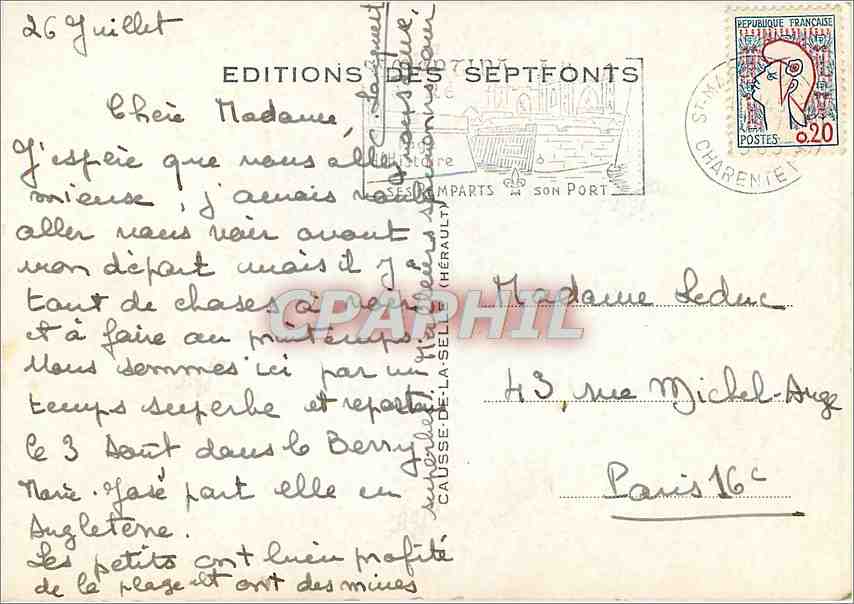 26 Juillet
EDITIONS DES SEPTFONTS
Chère Madame,
J'espère que vous allez
mieux, j'aurais voulu
aller vous voir avant
mon départ mais il y a
tant de choses à voir
et à faire au printemps.
Nous sommes ici par un
temps superbe et repartons
le 3 Août dans le Berry
Marie-José part elle en
Angleterre.
Les petits ont bien profité
de la plage et ont des mines
superbes. Meilleurs souvenirs pour
vous deux.
CAUSSE-DE-LA-SELLE (HÉRAULT)
REPUBLIQUE FRANÇAISE
POSTES 0,20
ST-MA
CHARENTE
Histoire
SES REMPARTS SON PORT
CPAPHIL
Madame Leduc
43, rue Michel-Ange
Paris 16e